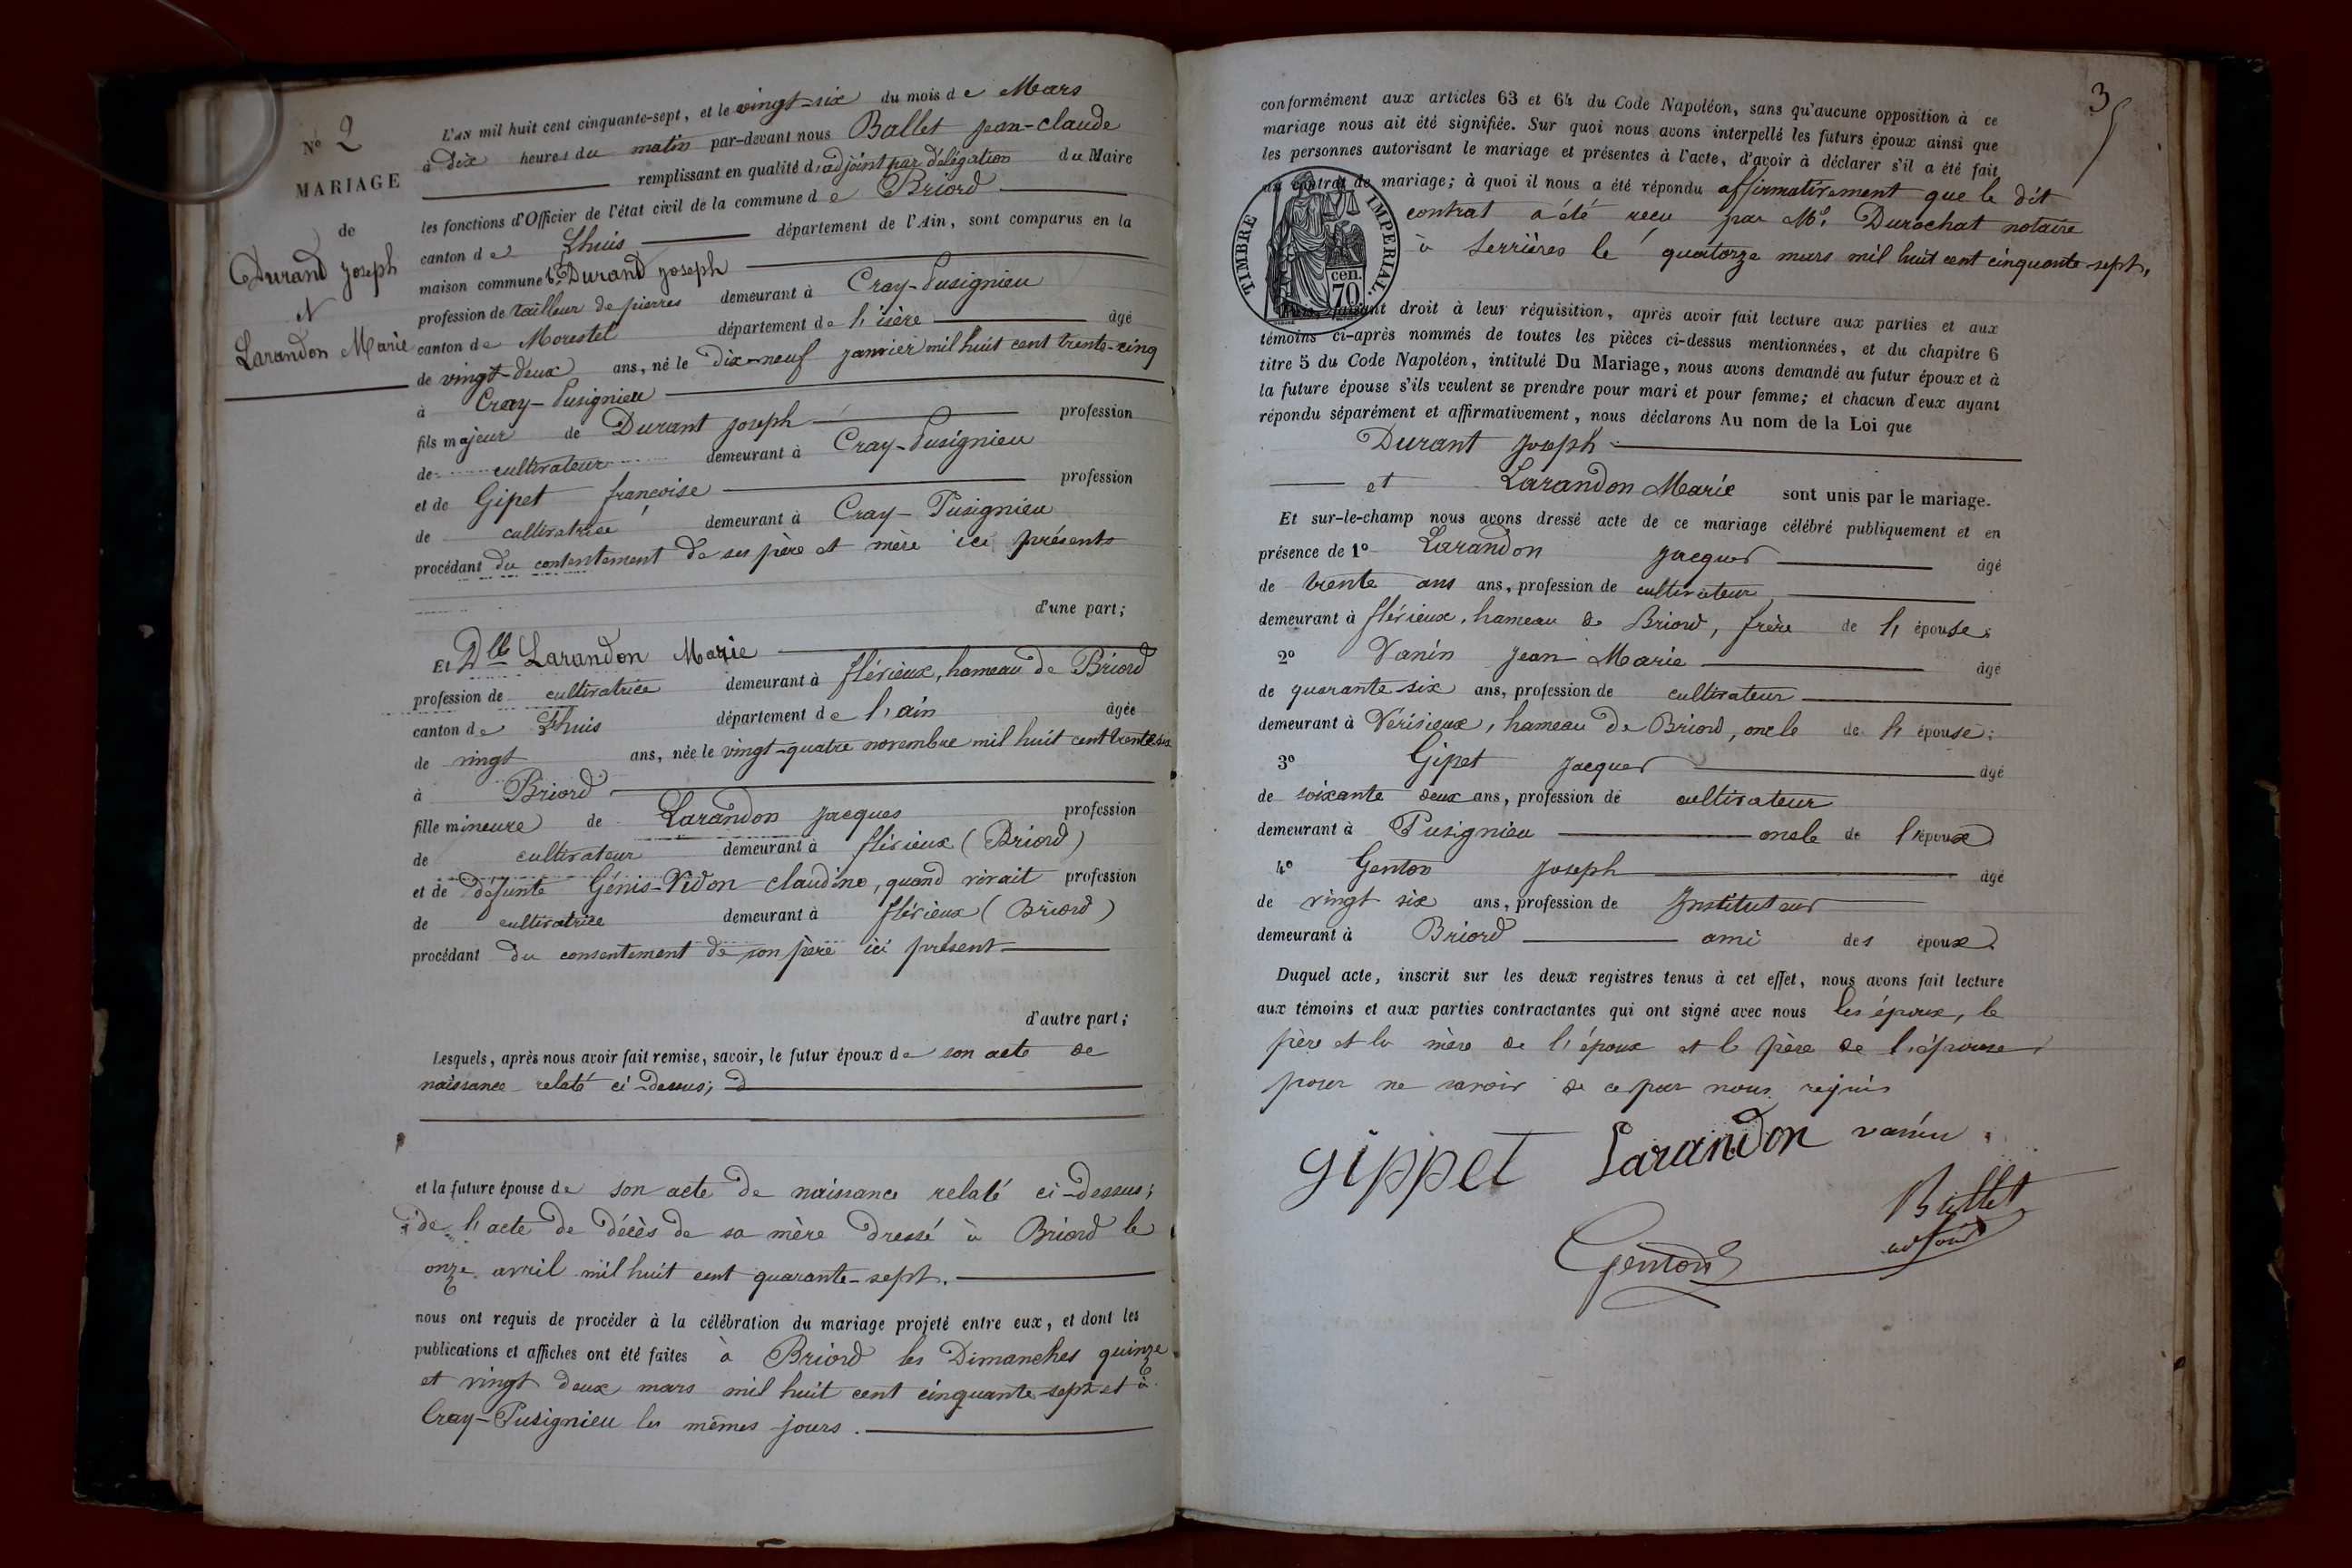 N.º 2
MARIAGE
de
Durand Joseph
et
Larandon Marie
L'AN mil huit cent cinquante-sept, et le vingt-six du mois de Mars
à dix heures du matin par-devant nous Ballet Jean-claude
remplissant en qualité d'adjoint par délégation du Maire
les fonctions d'Officier de l'état civil de la commune de Briord
canton de Lhuis département de l'Ain, sont comparus en la
maison commune 1º Durand Joseph
profession de tailleur de pierres demeurant à Cray-Pusignieu
canton de Morestel département de l'isère âgé
de vingt-deux ans, né le dix-neuf janvier mil huit cent trente-cinq
à Cray-Pusignieu
fils majeur de Durant Joseph profession
de cultivateur demeurant à Cray-Pusignieu
et de Gipet françoise profession
de cultivatrice demeurant à Cray-Pusignieu
procédant du contentement de ses père et mère ici présents
d'une part;
Et Dlle Larandon Marie
profession de cultivatrice demeurant à flérieux, hameau de Briord
canton de Lhuis département de l'ain âgée
de vingt ans, née le vingt-quatre novembre mil huit cent trente six
à Briord
fille mineure de Larandon Jacques profession
de cultivateur demeurant à flérieux (Briord)
et de défunte Génis-Vidon claudine, quand vivait profession
de cultivatrice demeurant à flérieux (Briord)
procédant du consentement de son père ici présent
d'autre part;
Lesquels, après nous avoir fait remise, savoir, le futur époux de son acte de
naissance relaté ci-dessus;
et la future épouse de son acte de naissance relaté ci-dessus;
de l'acte de décès de sa mère dressé à Briord le
onze avril mil huit cent quarante-sept.
nous ont requis de procéder à la célébration du mariage projeté entre eux, et dont les
publications et affiches ont été faites à Briord les Dimanches quinze
et vingt deux mars mil huit cent cinquante-sept et à
Cray-Pusignieu les mêmes jours.
3
conformément aux articles 63 et 64 du Code Napoléon, sans qu'aucune opposition à ce
mariage nous ait été signifiée. Sur quoi nous avons interpellé les futurs époux ainsi que
les personnes autorisant le mariage et présentes à l'acte, d'avoir à déclarer s'il a été fait
un contrat de mariage; à quoi il nous a été répondu affirmativement que le dit
contrat a été reçu par Me. Durochat notaire
à Serrières le quatorze mars mil huit cent cinquante-sept.
TIMBRE IMPERIAL.
cen.
70
Puis, faisant droit à leur réquisition, après avoir fait lecture aux parties et aux
témoins ci-après nommés de toutes les pièces ci-dessus mentionnées, et du chapitre 6
titre 5 du Code Napoléon, intitulé Du Mariage, nous avons demandé au futur époux et à
la future épouse s'ils veulent se prendre pour mari et pour femme; et chacun d'eux ayant
répondu séparément et affirmativement, nous déclarons Au nom de la Loi que
Durant Joseph
et Larandon Marie sont unis par le mariage.
Et sur-le-champ nous avons dressé acte de ce mariage célébré publiquement et en
présence de 1º Larandon Jacques âgé
de trente ans ans, profession de cultivateur
demeurant à flérieux, hameau de Briord, frère de l'épouse;
2º Vanin Jean Marie âgé
de quarante-six ans, profession de cultivateur
demeurant à Vérisieux, hameau de Briord, oncle de l'épouse;
3º Gipet Jacques âgé
de soixante deux ans, profession de cultivateur
demeurant à Pusignieu oncle de l'époux
4º Genton Joseph âgé
de vingt six ans, profession de Instituteur
demeurant à Briord ami des époux.
Duquel acte, inscrit sur les deux registres tenus à cet effet, nous avons fait lecture
aux témoins et aux parties contractantes qui ont signé avec nous les époux, le
père et la mère de l'époux et le père de l'épouse
pour ne savoir de ce par nous requis
gippet Larandon vanin
Ballet
adjoint
Genton